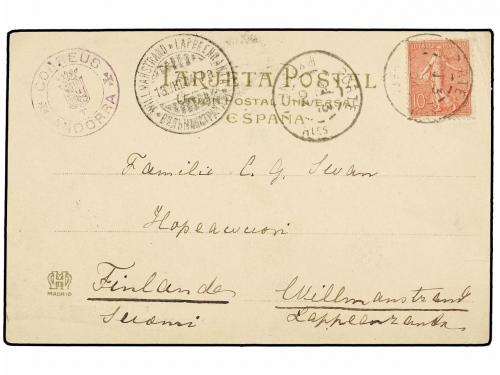 CORREUS
ANDORRA
WILLMANSTRAND LAPPEENRANTA
TARJETA POSTAL
UNIÓN POSTAL UNIVERSAL
ESPAÑA
10
Familie C. G. Svan
Finlande
Willmanstrand
Suomi
Lappeenranta
MADRID